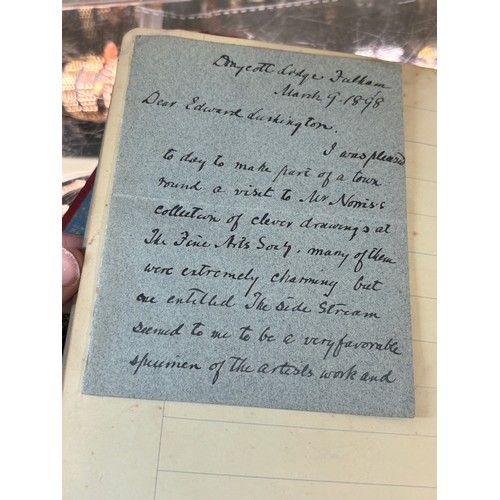 Dorycott Lodge Fulham
March 9. 1898
Dear Edward Lushington.
I was pleased
to day to make part of a town
round a visit to Mr Norris's
collection of clever drawings at
The Fine Arts Socy. many of them
were extremely charming but
one entitled The Side Stream
seemed to me to be a very favorable
specimen of the artists work and